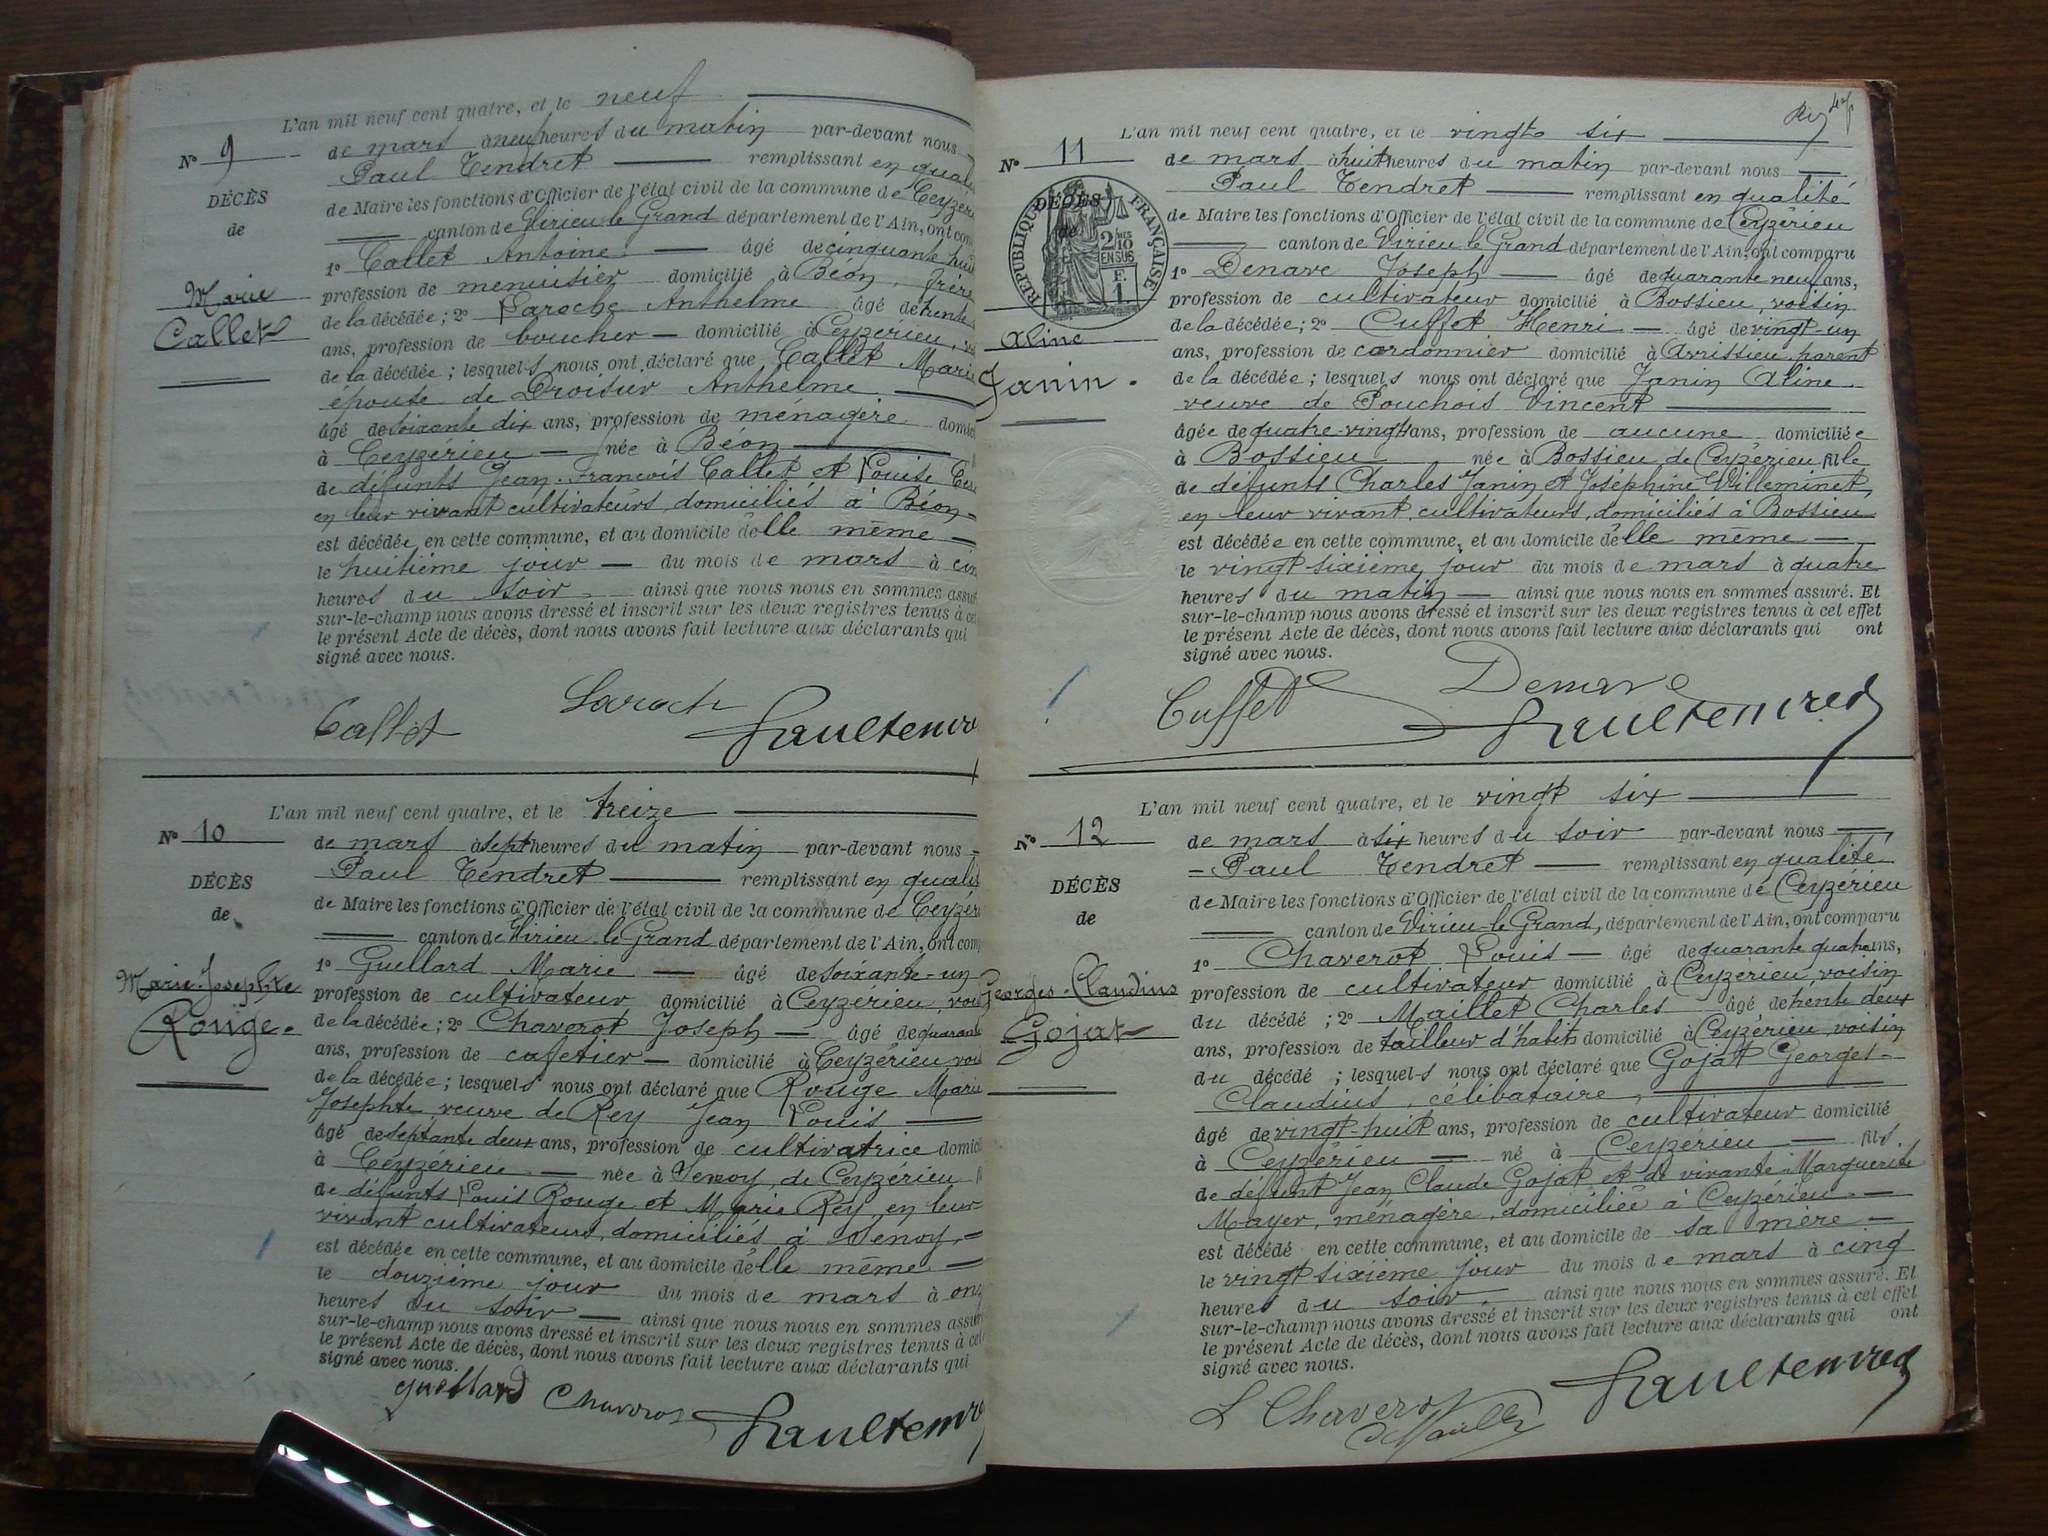 L'an mil neuf cent quatre, et le neuf
N° 9
de mars à neuf heures du matin par-devant nous
Paul Tendret remplissant en qual
DÉCÈS
de
Marie
Callet
de Maire les fonctions d'Officier de l'état civil de la commune de Ceyzér
canton de Virieu-le-Grand département de l'Ain, ont com
1° Callet Antoine âgé de cinquante huit
profession de menuisier domicilié à Béon, frère
de la décédée ; 2° Laroche Anthelme âgé de trente
ans, profession de boucher domicilié à Ceyzérieu,
de la décédée ; lesquels nous ont déclaré que Callet Marie
épouse de Anthelme
âgé de soixante dix ans, profession de ménagère domici
à Ceyzérieu née à Béon
de défunts Jean-François Callet et Louise
en leur vivant cultivateurs domiciliés à Béon
est décédée en cette commune, et au domicile d'elle même
le huitième jour du mois de mars à cin
heures du soir ainsi que nous nous en sommes assur
sur-le-champ nous avons dressé et inscrit sur les deux registres tenus à cet
le présent Acte de décès, dont nous avons fait lecture aux déclarants qui
signé avec nous.
Callet Laroch Paul tendre
L'an mil neuf cent quatre, et le treize
N° 10
de mars à sept heures du matin par-devant nous
Paul Tendret remplissant en qualit
DÉCÈS
de
Marie-Josephte
Rouge
de Maire les fonctions d'Officier de l'état civil de la commune de Ceyzér
canton de Virieu-le-Grand département de l'Ain, ont comp
1° Guellard Marie âgé de soixante-un
profession de cultivateur domicilié à Ceyzérieu, voi
de la décédée ; 2° Chaverot Joseph âgé de quarante
ans, profession de cafetier domicilié à Ceyzérieu, voi
de la décédée ; lesquels nous ont déclaré que Rouge Marie
Josephte, veuve de Rey Jean Louis
âgé de septante deux ans, profession de cultivatrice domici
à Ceyzérieu née à Senoy, de Ceyzérieu
de défunts Louis Rouge et Marie Rey, en leur
vivant cultivateurs, domiciliés à Senoy,
est décédée en cette commune, et au domicile d'elle même
le douzième jour du mois de mars à onz
heures du soir ainsi que nous nous en sommes assur
sur-le-champ nous avons dressé et inscrit sur les deux registres tenus à cet
le présent Acte de décès, dont nous avons fait lecture aux déclarants qui
signé avec nous.
guellard Chaverot Paul tendre
L'an mil neuf cent quatre, et le vingt six
N° 11
de mars à huit heures du matin par-devant nous
Paul Tendret remplissant en qualité
DÉCÈS
de
RÉPUBLIQUE FRANÇAISE
2/10 EN SUS
F. 1
Aline
Janin.
de Maire les fonctions d'Officier de l'état civil de la commune de Ceyzérieu
canton de Virieu-le-Grand département de l'Ain, ont comparu
1° Denare Joseph âgé de quarante neuf ans,
profession de cultivateur domicilié à Bossieu, voisin
de la décédée ; 2° Cuffet Henri âgé de vingt-un
ans, profession de cordonnier domicilié à Avrissieu, parent
de la décédée ; lesquels nous ont déclaré que Janin Aline.
veuve de Pouchois Vincent
âgée de quatre-vingts ans, profession de aucune domiciliée
à Bossieu née à Bossieu de Ceyzérieu, fille
de défunts Charles Janin et Joséphine Villeminet,
en leur vivant, cultivateurs, domiciliés à Bossieu
est décédée en cette commune, et au domicile d'elle même
le vingt sixième jour du mois de mars à quatre
heures du matin ainsi que nous nous en sommes assuré. Et
sur-le-champ nous avons dressé et inscrit sur les deux registres tenus à cet effet
le présent Acte de décès, dont nous avons fait lecture aux déclarants qui ont
signé avec nous.
Cuffet Denare Paul tendret
L'an mil neuf cent quatre, et le vingt six
N° 12
de mars à six heures du soir par-devant nous
Paul Tendret remplissant en qualité
DÉCÈS
de
Georges-Claudius
Gojat
de Maire les fonctions d'Officier de l'état civil de la commune de Ceyzérieu
canton de Virieu-le-Grand, département de l'Ain, ont comparu
1° Chaverot Louis âgé de quarante quatre ans,
profession de cultivateur domicilié à Ceyzérieu, voisin
du décédé ; 2° Maillet Charles âgé de trente deux
ans, profession de tailleur d'habits domicilié à Ceyzérieu, voisin
du décédé ; lesquels nous ont déclaré que Gojat Georges-
Claudius, célibataire,
âgé de vingt-huit ans, profession de cultivateur domicilié
à Ceyzérieu né à Ceyzérieu fils.
de défunt Jean Claude Gojat et de vivante Marguerite
Mayer, ménagère, domiciliée à Ceyzérieu.
est décédé en cette commune, et au domicile de sa mère.
le vingt sixième jour du mois de mars à cinq
heures du soir. ainsi que nous nous en sommes assuré. Et
sur-le-champ nous avons dressé et inscrit sur les deux registres tenus à cet effet
le présent Acte de décès, dont nous avons fait lecture aux déclarants qui ont
signé avec nous.
L Chaverot Paul tendret